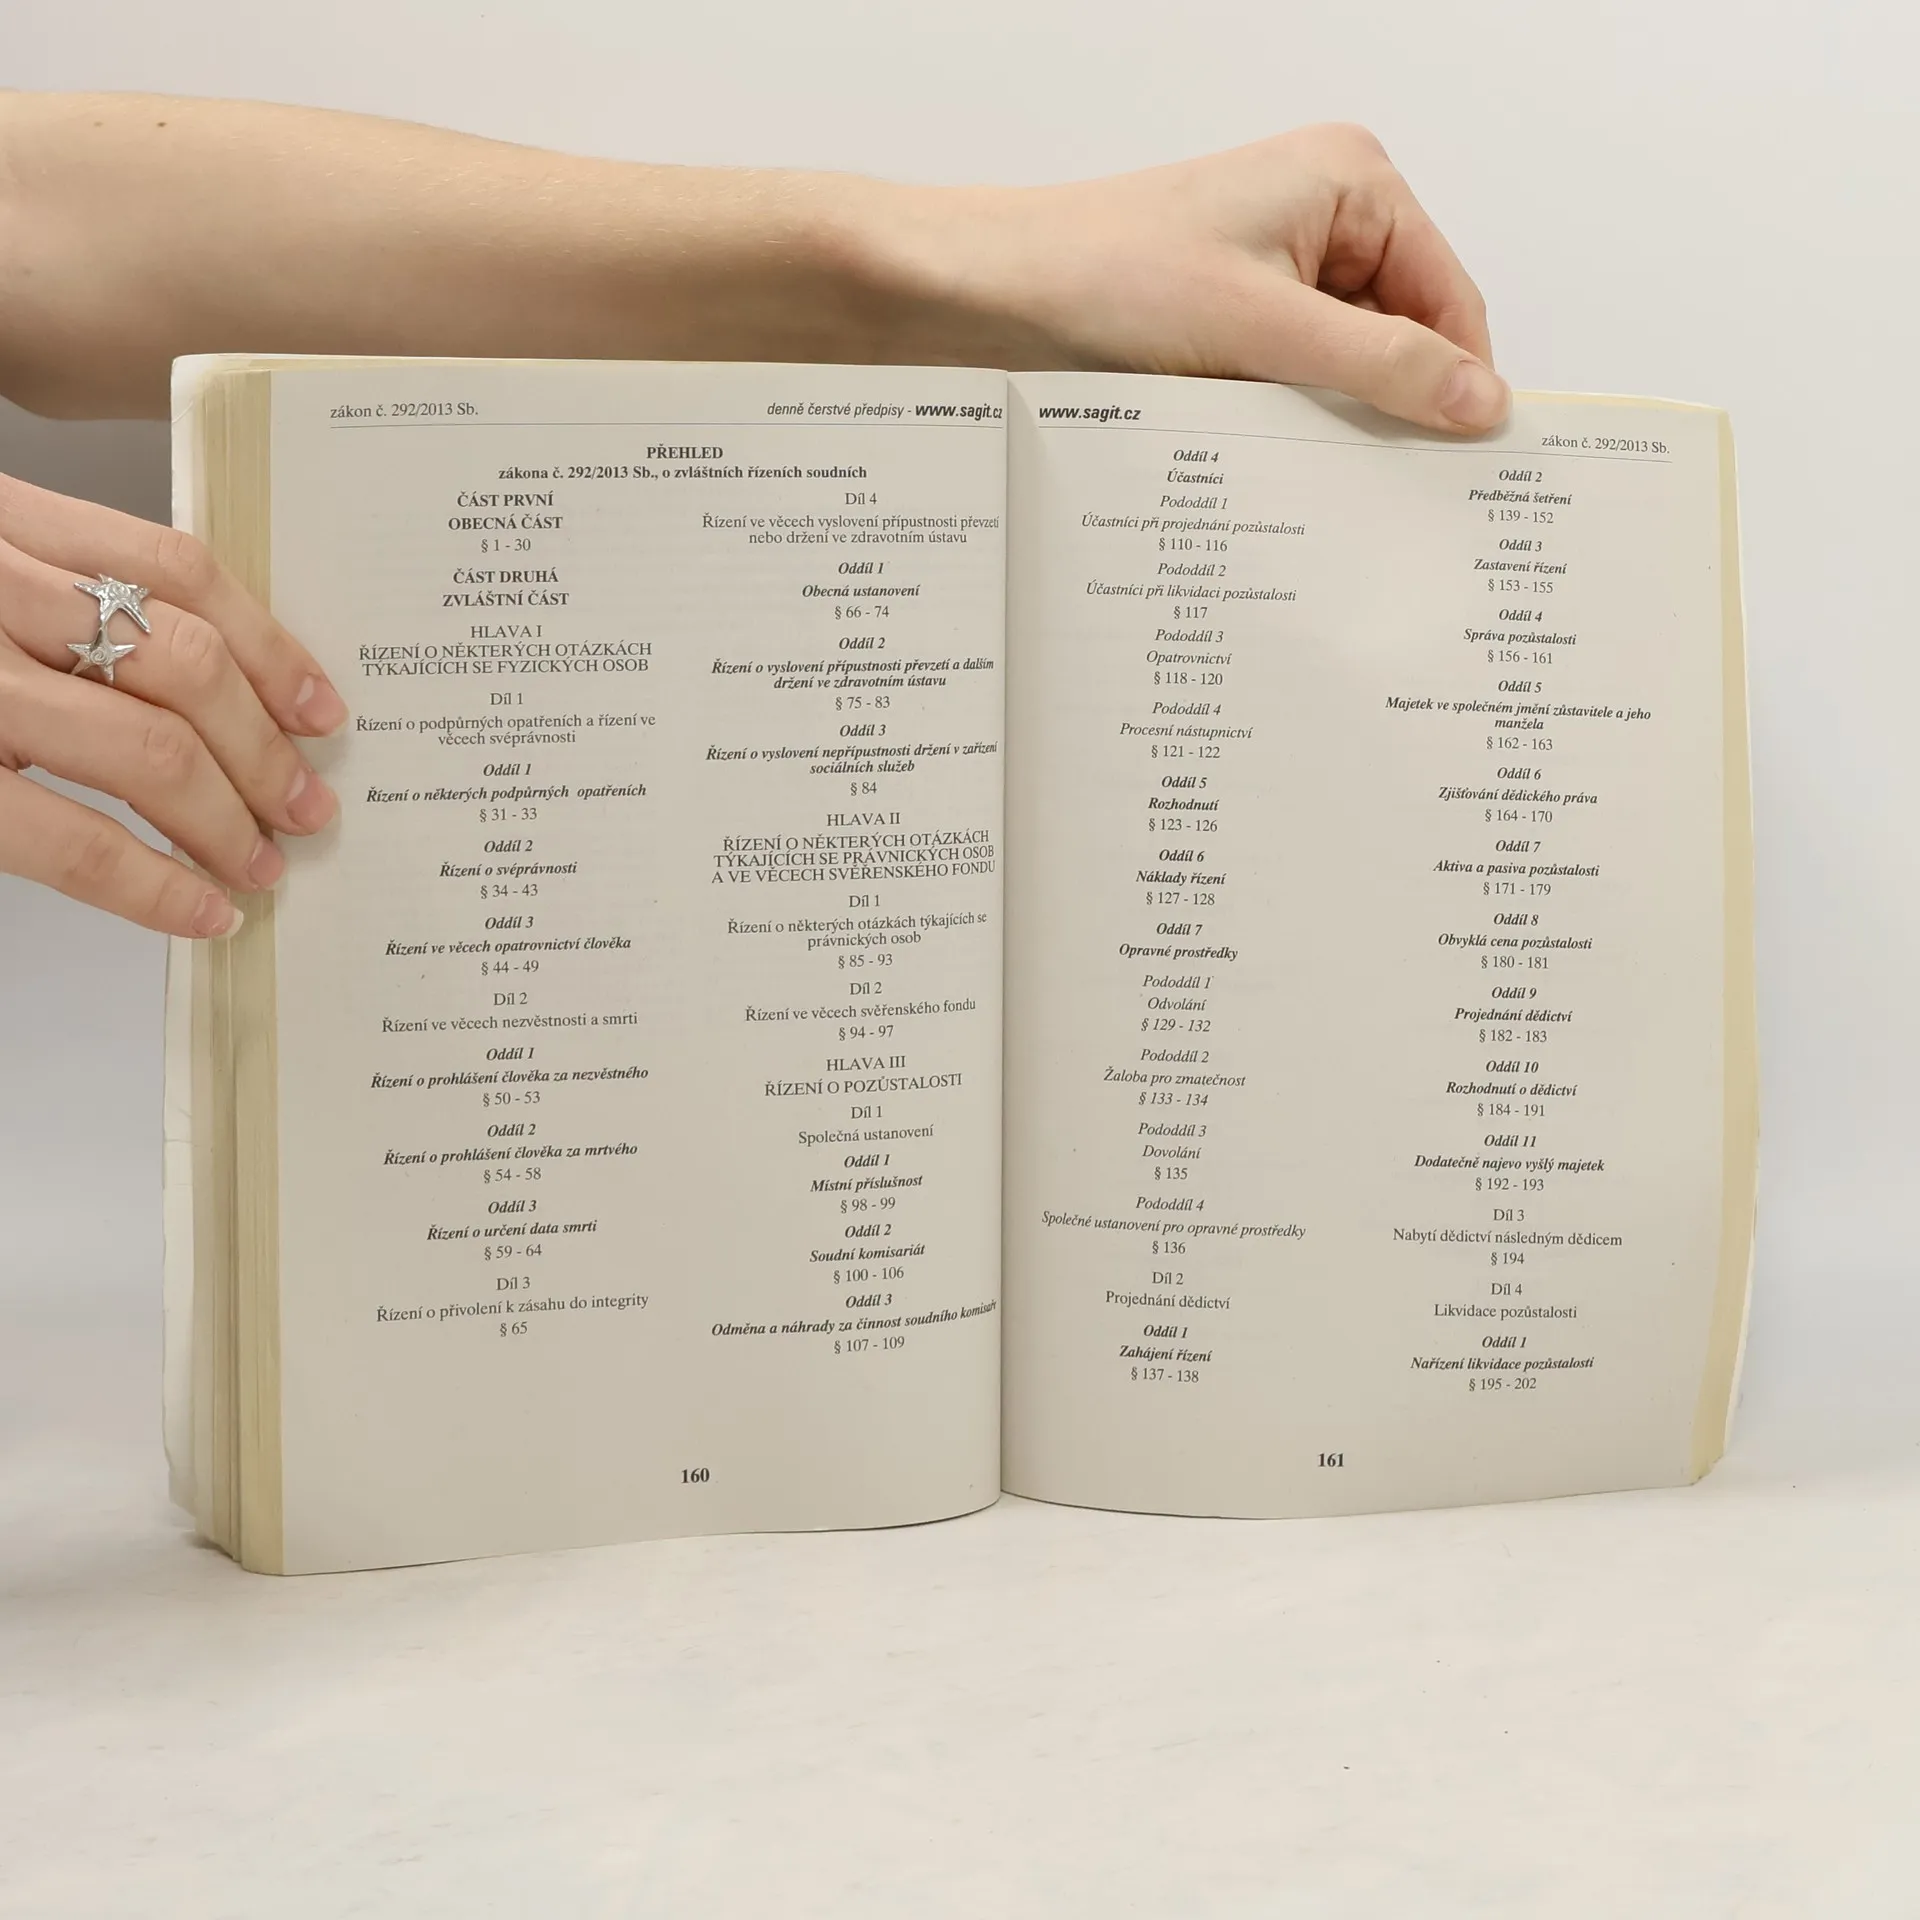 zákon č. 292/2013 Sb.
denně čerstvé předpisy - www.sagit.cz
PŘEHLED
zákona č. 292/2013 Sb., o zvláštních řízeních soudních
ČÁST PRVNÍ
OBECNÁ ČÁST
§ 1 - 30
ČÁST DRUHÁ
ZVLÁŠTNÍ ČÁST
HLAVA I
ŘÍZENÍ O NĚKTERÝCH OTÁZKÁCH
TÝKAJÍCÍCH SE FYZICKÝCH OSOB
Díl 1
Řízení o podpůrných opatřeních a řízení ve
věcech svéprávnosti
Oddíl 1
Řízení o některých podpůrných opatřeních
§ 31 - 33
Oddíl 2
Řízení o svéprávnosti
§ 34 - 43
Oddíl 3
Řízení ve věcech opatrovnictví člověka
§ 44 - 49
Díl 2
Řízení ve věcech nezvěstnosti a smrti
Oddíl 1
Řízení o prohlášení člověka za nezvěstného
§ 50 - 53
Oddíl 2
Řízení o prohlášení člověka za mrtvého
§ 54 - 58
Oddíl 3
Řízení o určení data smrti
§ 59 - 64
Díl 3
Řízení o přivolení k zásahu do integrity
§ 65
Díl 4
Řízení ve věcech vyslovení přípustnosti převzetí
nebo držení ve zdravotním ústavu
Oddíl 1
Obecná ustanovení
§ 66 - 74
Oddíl 2
Řízení o vyslovení přípustnosti převzetí a dalším
držení ve zdravotním ústavu
§ 75 - 83
Oddíl 3
Řízení o vyslovení nepřípustnosti držení v zařízení
sociálních služeb
§ 84
HLAVA II
ŘÍZENÍ O NĚKTERÝCH OTÁZKÁCH
TÝKAJÍCÍCH SE PRÁVNICKÝCH OSOB
A VE VĚCECH SVĚŘENSKÉHO FONDU
Díl 1
Řízení o některých otázkách týkajících se
právnických osob
§ 85 - 93
Díl 2
Řízení ve věcech svěřenského fondu
§ 94 - 97
HLAVA III
ŘÍZENÍ O POZŮSTALOSTI
Díl 1
Společná ustanovení
Oddíl 1
Místní příslušnost
§ 98 - 99
Oddíl 2
Soudní komisariát
§ 100 - 106
Oddíl 3
Odměna a náhrady za činnost soudního komisaře
§ 107 - 109
160
www.sagit.cz
zákon č. 292/2013 Sb.
Oddíl 4
Účastníci
Pododdíl 1
Účastníci při projednání pozůstalosti
§ 110 - 116
Pododdíl 2
Účastníci při likvidaci pozůstalosti
§ 117
Pododdíl 3
Opatrovnictví
§ 118 - 120
Pododdíl 4
Procesní nástupnictví
§ 121 - 122
Oddíl 5
Rozhodnutí
§ 123 - 126
Oddíl 6
Náklady řízení
§ 127 - 128
Oddíl 7
Opravné prostředky
Pododdíl 1
Odvolání
§ 129 - 132
Pododdíl 2
Žaloba pro zmatečnost
§ 133 - 134
Pododdíl 3
Dovolání
§ 135
Pododdíl 4
Společné ustanovení pro opravné prostředky
§ 136
Díl 2
Projednání dědictví
Oddíl 1
Zahájení řízení
§ 137 - 138
Oddíl 2
Předběžná šetření
§ 139 - 152
Oddíl 3
Zastavení řízení
§ 153 - 155
Oddíl 4
Správa pozůstalosti
§ 156 - 161
Oddíl 5
Majetek ve společném jmění zůstavitele a jeho
manžela
§ 162 - 163
Oddíl 6
Zjišťování dědického práva
§ 164 - 170
Oddíl 7
Aktiva a pasiva pozůstalosti
§ 171 - 179
Oddíl 8
Obvyklá cena pozůstalosti
§ 180 - 181
Oddíl 9
Projednání dědictví
§ 182 - 183
Oddíl 10
Rozhodnutí o dědictví
§ 184 - 191
Oddíl 11
Dodatečně najevo vyšlý majetek
§ 192 - 193
Díl 3
Nabytí dědictví následným dědicem
§ 194
Díl 4
Likvidace pozůstalosti
Oddíl 1
Nařízení likvidace pozůstalosti
§ 195 - 202
161